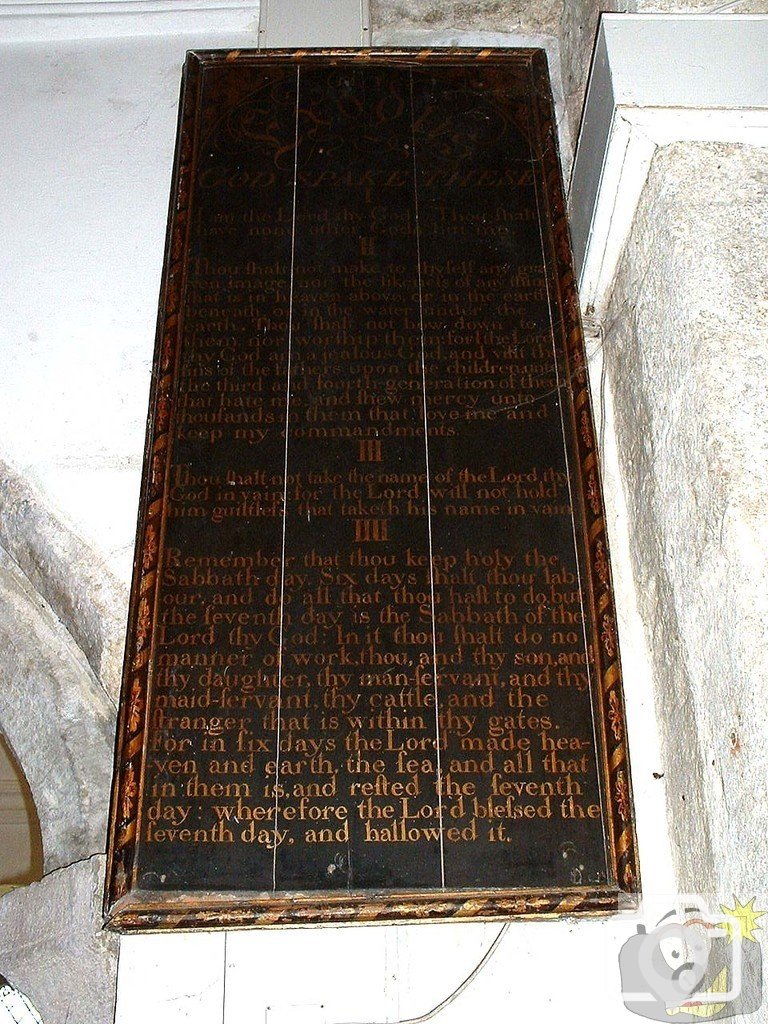 EXODUS
GOD SPAKE THESE
I
I am the Lord thy God: Thou ſhalt
have none other Gods but me.
II
Thou ſhalt not make to thyſelf any gra
ven image nor the likeneſs of any thing
that is in heaven above, or in the earth
beneath, or in the water under the
earth. Thou ſhalt not bow down to
them, nor worſhip them: for I the Lord
thy God am a jealous God, and viſit the
ſins of the fathers upon the children unto
the third and fourth generation of them
that hate me, and ſhew mercy unto
thouſands in them that love me and
keep my commandments.
III
Thou ſhalt not take the name of the Lord thy
God in vain for the Lord will not hold
him guiltleſs that taketh his name in vain
IIII
Remember that thou keep holy the
Sabbath day. Six days ſhalt thou lab
our, and do all that thou haſt to do, but
the ſeventh day is the Sabbath of the
Lord thy God: In it thou ſhalt do no
manner of work, thou, and thy son, and
thy daughter, thy man-ſervant, and thy
maid-ſervant, thy cattle and the
ſtranger that is within thy gates.
For in ſix days the Lord made hea-
ven and earth, the ſea, and all that
in them is, and reſted the ſeventh
day: wherefore the Lord bleſsed the
ſeventh day, and hallowed it.